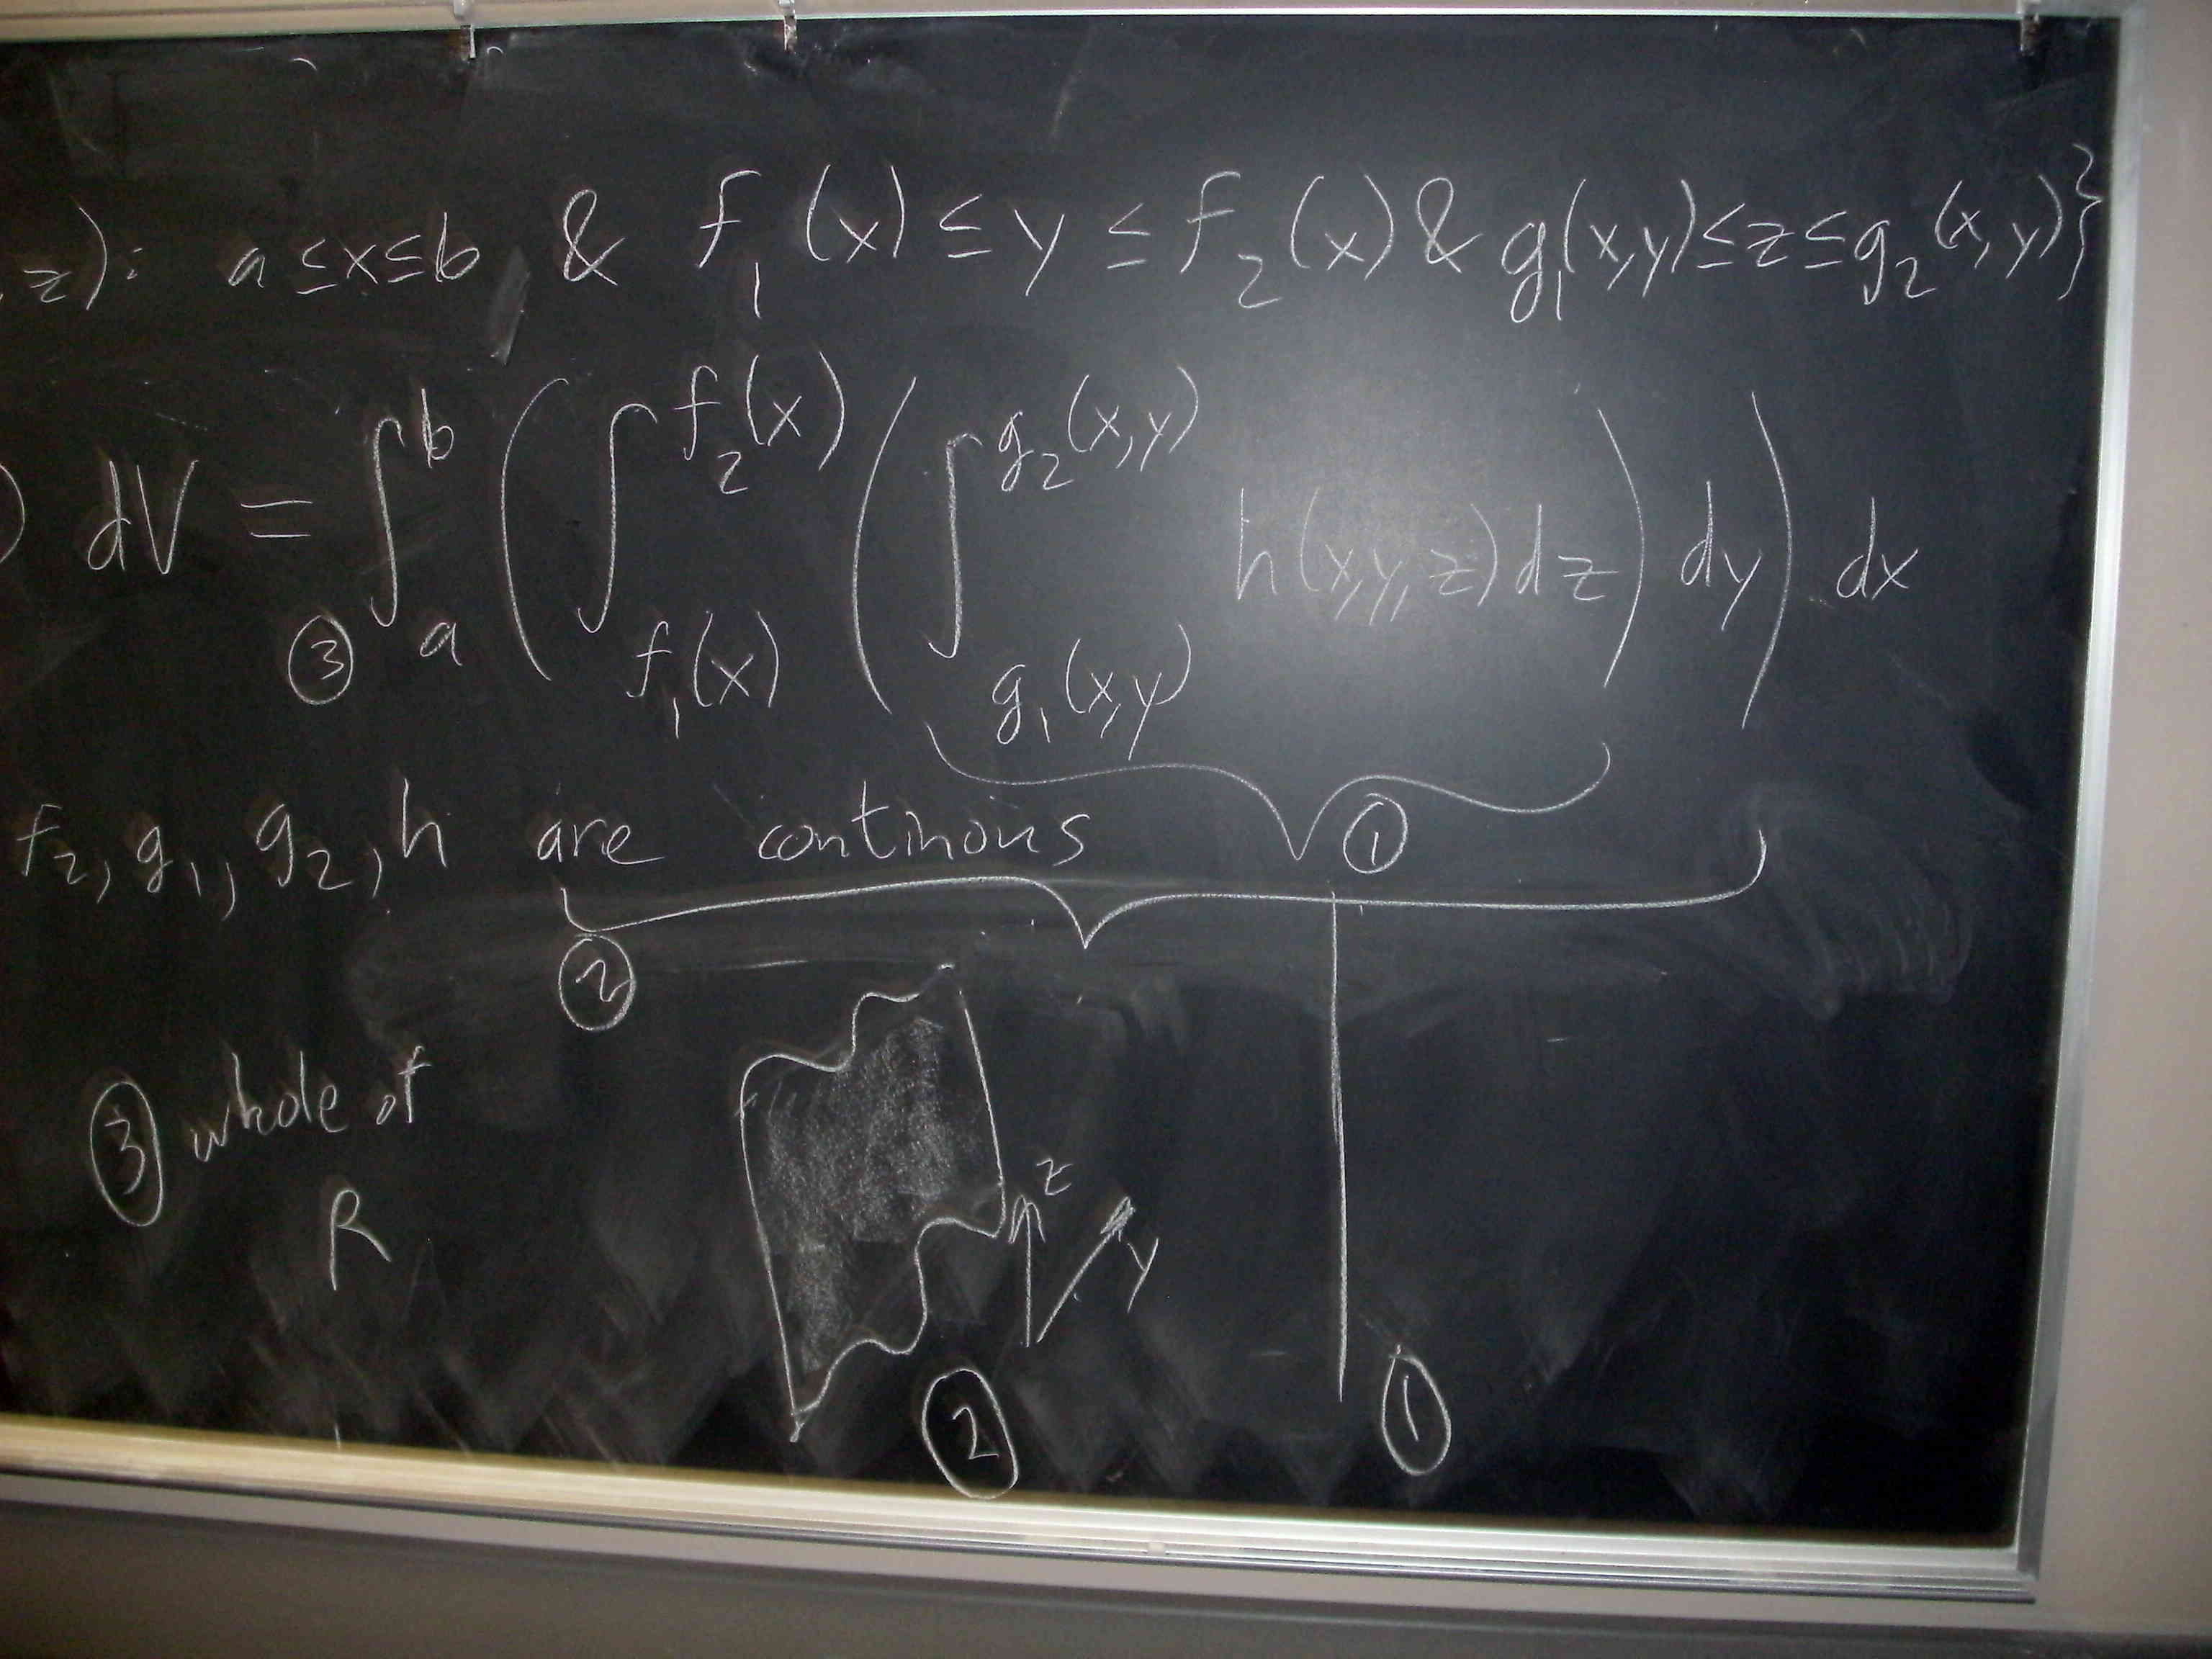 , z): a ≤ x ≤ b & f₁(x) ≤ y ≤ f₂(x) & g₁(x,y) ≤ z ≤ g₂(x,y)}
) dV = ∫_a^b ( ∫_{f₁(x)}^{f₂(x)} ( ∫_{g₁(x,y)}^{g₂(x,y)} h(x,y,z) dz ) dy ) dx
③
f₂, g₁, g₂, h are continous ①
②
③ whole of
R
z
y
② ①